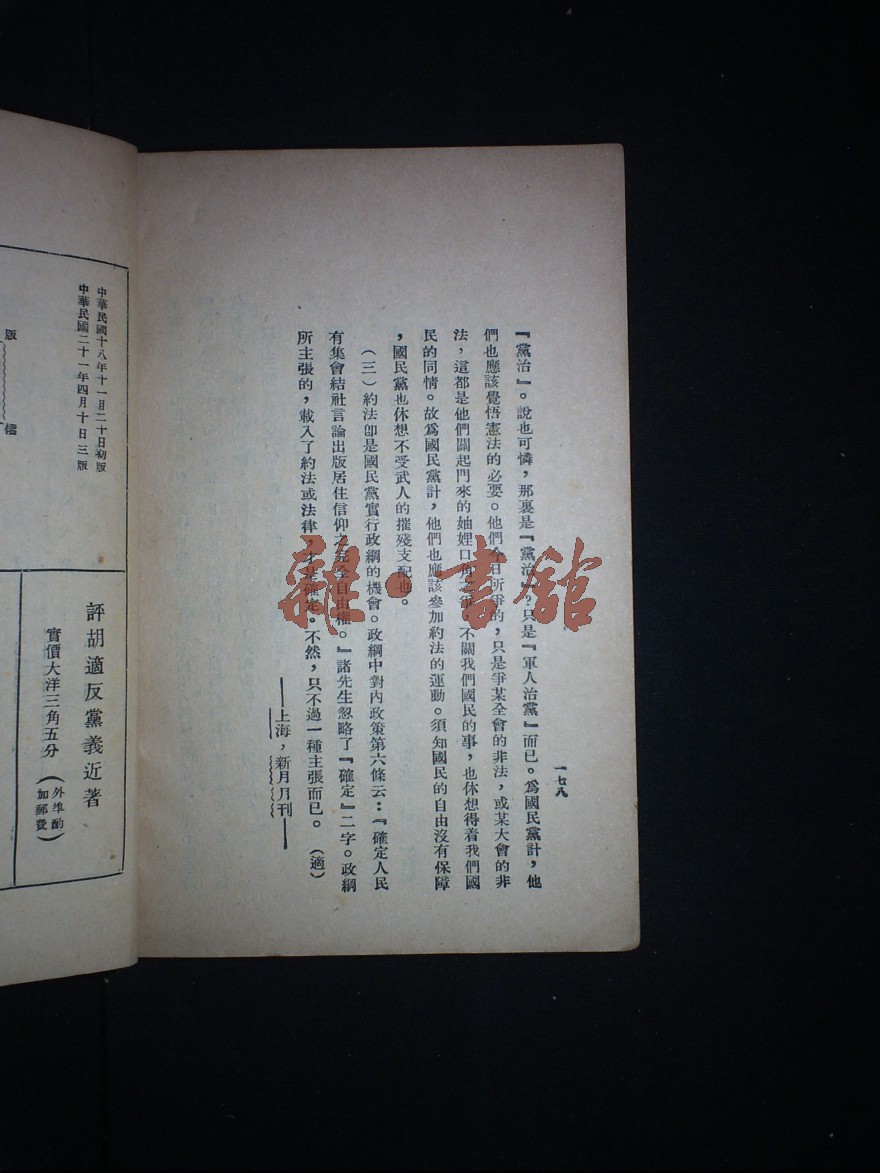 一七八
『黨治』。說也可憐，那裏是『黨治』？只是『軍人治黨』而已。爲國民黨計，他
們也應該覺悟憲法的必要。他們今日所爭的，只是爭某全會的非法，或某大會的非
法，這都是他們關起門來的妯娌口角之爭，不關我們國民的事，也休想得着我們國
民的同情。故爲國民黨計，他們也應該參加約法的運動。須知國民的自由沒有保障
，國民黨也休想不受武人的摧殘支配也。
（三）約法卽是國民黨實行政綱的機會。政綱中對內政策第六條云：『確定人民
有集會結社言論出版居住信仰之完全自由權。』諸先生忽略了『確定』二字。政綱
所主張的，載入了約法或法律，才是確定。不然，只不過一種主張而已。（適）
——上海，新月月刊——
中華民國十八年十一月二十日初版
中華民國二十一年四月十日三版
版權
評胡適反黨義近著
實價大洋三角五分
（外埠酌加郵費）
雜·書館